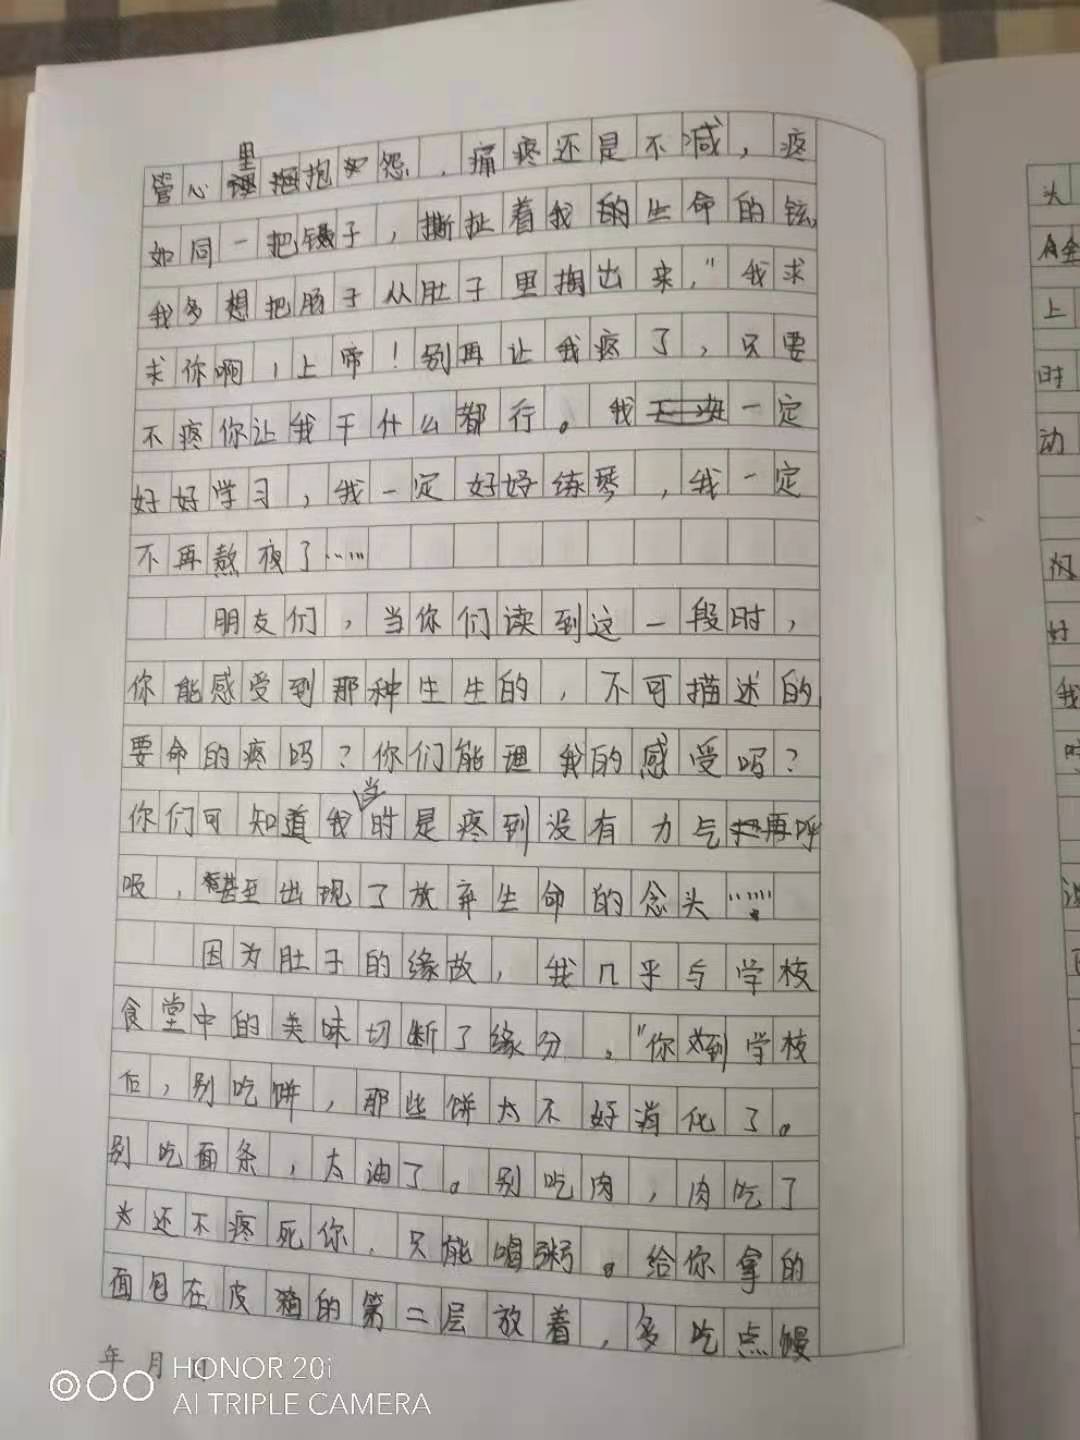 管心里抱怨，痛疼还是不减，疼
如同一把镊子，撕扯着我的生命的弦
我多想把肠子从肚子里掏出来，"我求
求你啊，上帝！别再让我疼了，只要
不疼你让我干什么都行。我一定
好好学习，我一定好好练琴，我一定
不再熬夜了……
朋友们，当你们读到这一段时，
你能感受到那种生生的，不可描述的
要命的疼吗？你们能理我的感受吗？
你们可知道我当时是疼到没有力气再呼
吸，甚至出现了放弃生命的念头……
因为肚子的缘故，我几乎与学校
食堂中的美味切断了缘分。"你到学校
后，别吃饼，那些饼太不好消化了。
别吃面条，太油了。别吃肉，肉吃了
还不疼死你，只能喝粥。给你拿的
面包在皮箱的第二层放着，多吃点馒
年 月 日
头
上
时
动
好
我
HONOR 20i
AI TRIPLE CAMERA